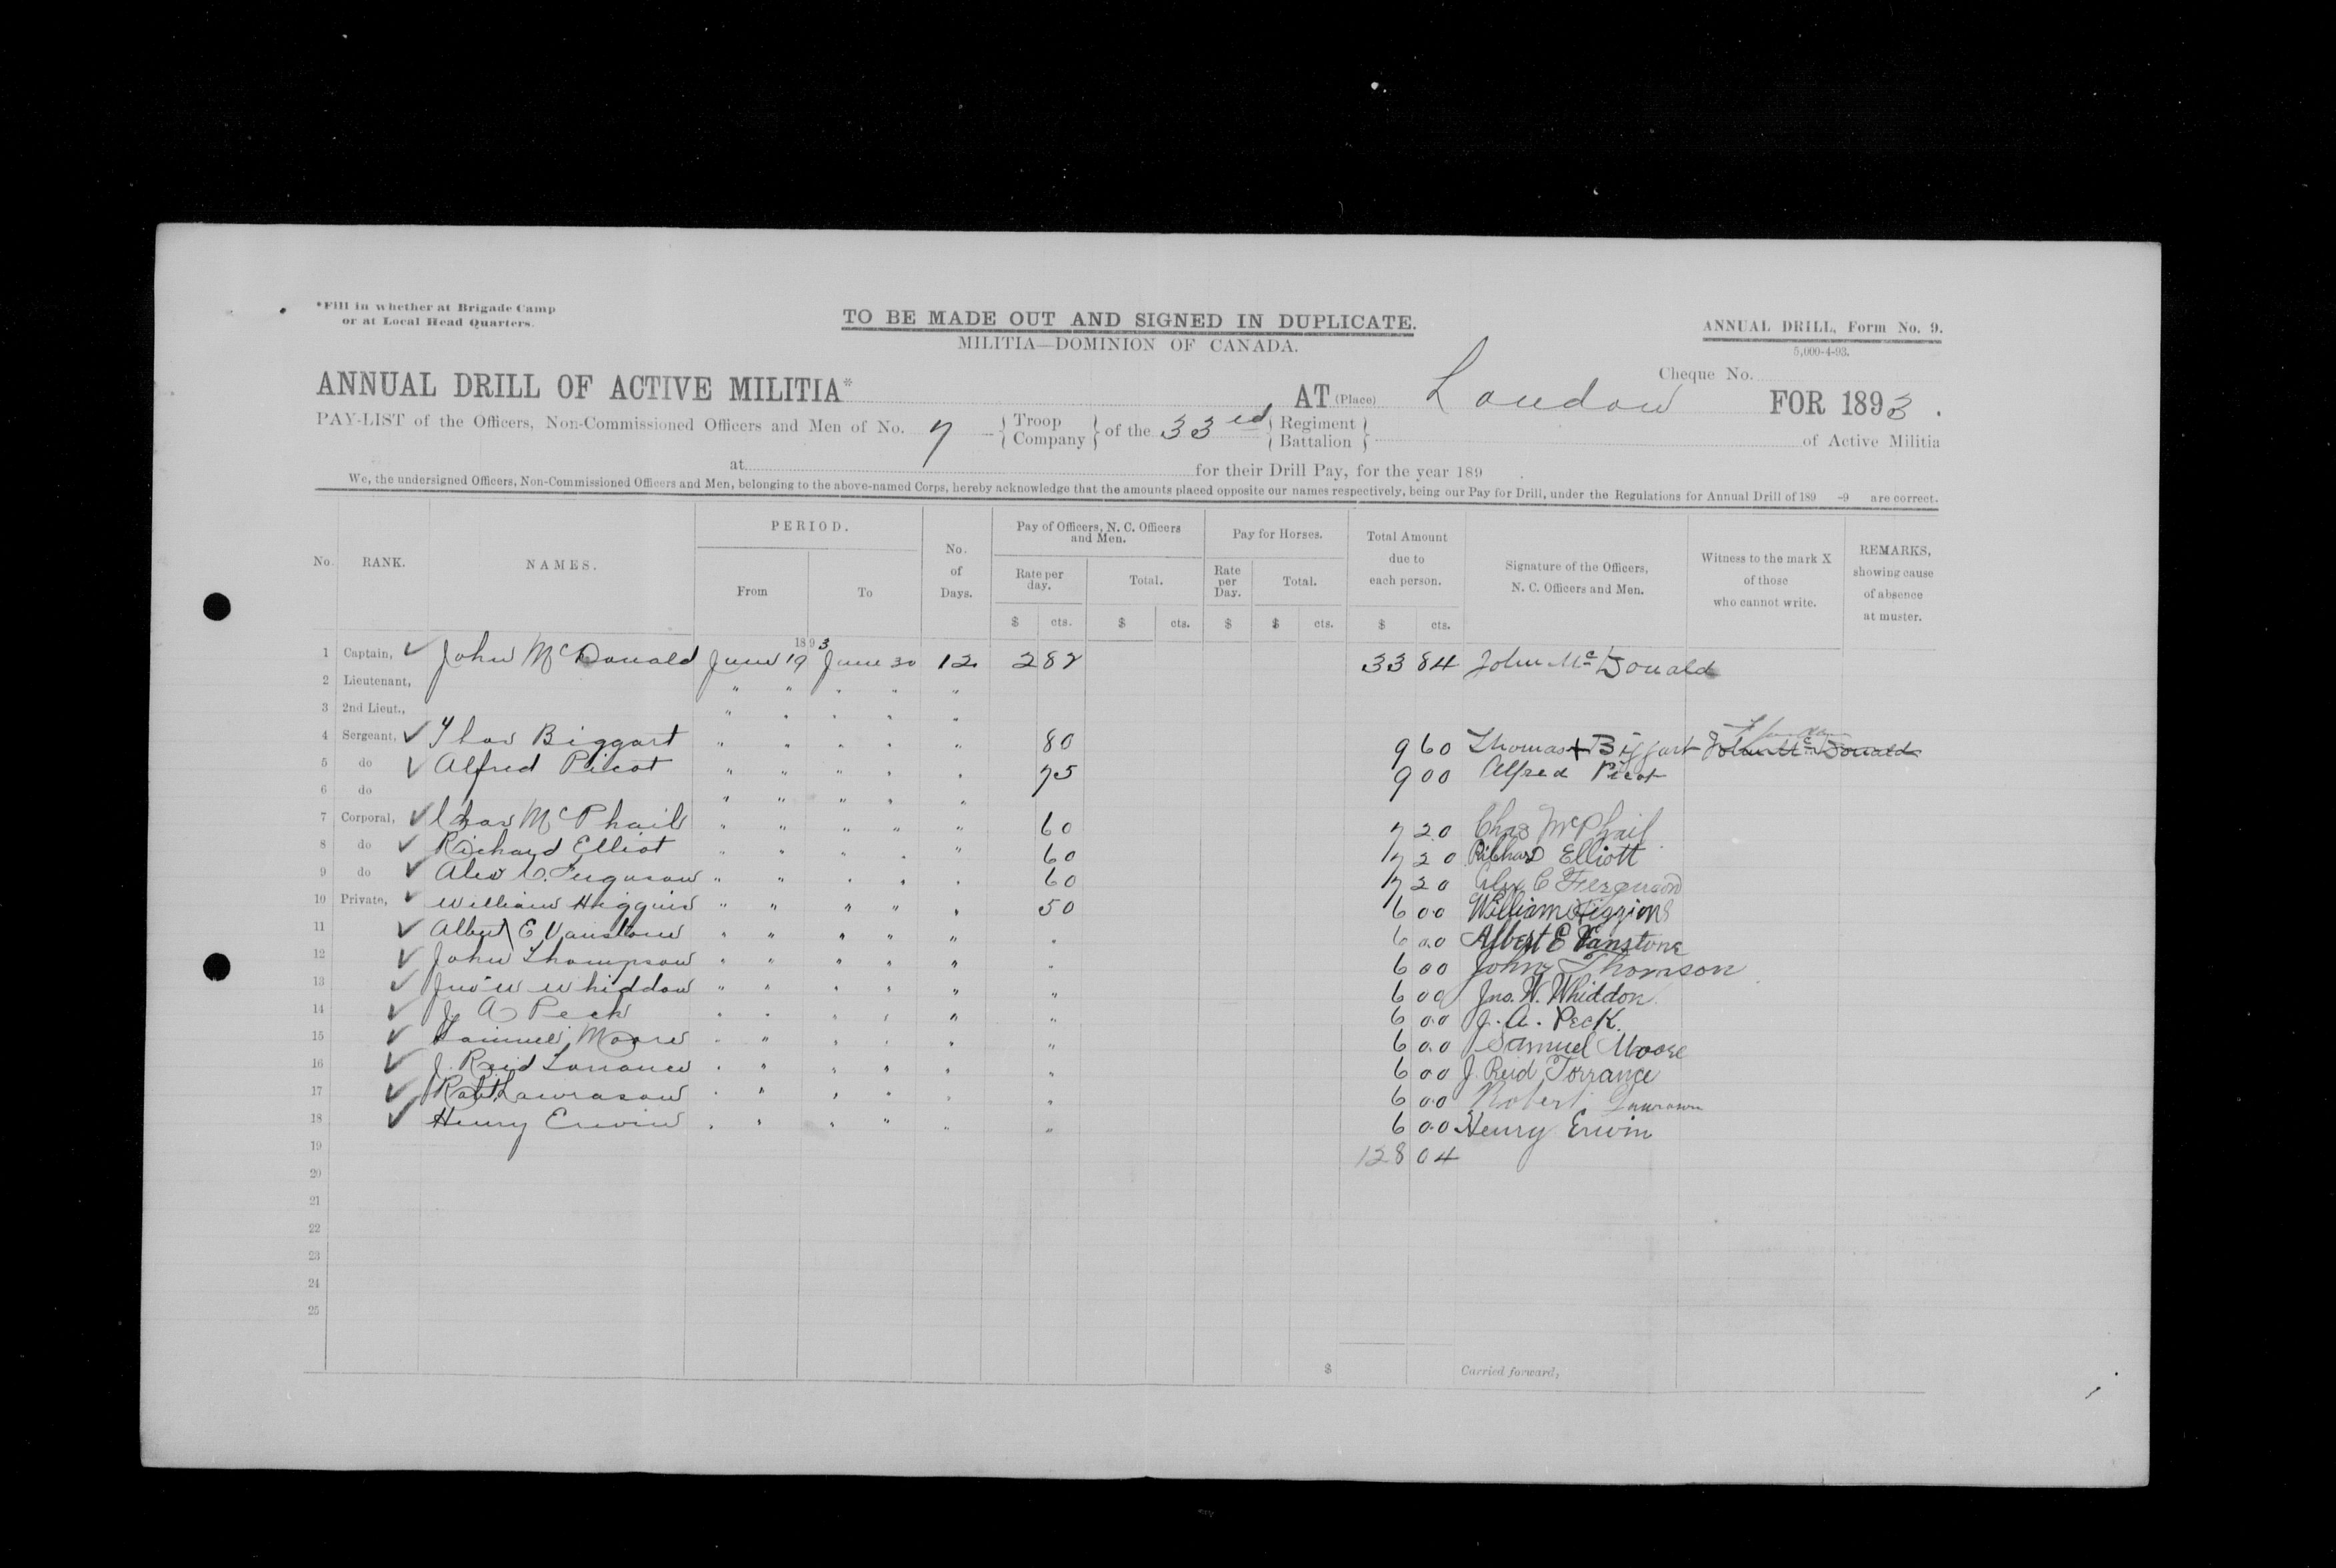 *Fill in whether at Brigade Camp
or at Local Head Quarters.
TO BE MADE OUT AND SIGNED IN DUPLICATE.
MILITIA—DOMINION OF CANADA.
ANNUAL DRILL, Form No. 9.
5,000-4-93.
Cheque No.
ANNUAL DRILL OF ACTIVE MILITIA* AT (Place) London FOR 1893.
PAY-LIST of the Officers, Non-Commissioned Officers and Men of No. 7 { Troop Company } of the 33rd { Regiment Battalion } of Active Militia
at for their Drill Pay, for the year 189 .
We, the undersigned Officers, Non-Commissioned Officers and Men, belonging to the above-named Corps, hereby acknowledge that the amounts placed opposite our names respectively, being our Pay for Drill, under the Regulations for Annual Drill of 189 -9 are correct.
No. RANK. NAMES. PERIOD. From To No. of Days. Pay of Officers, N. C. Officers and Men. Rate per day. Total. Pay for Horses. Rate per Day. Total. Total Amount due to each person. Signature of the Officers, N. C. Officers and Men. Witness to the mark X of those who cannot write. REMARKS, showing cause of absence at muster.
$ cts. $ cts. $ $ cts. $ cts.
1893
1 Captain, ✓ John McDonald June 19 June 30 12 2 82 33 84 John McDonald
2 Lieutenant, " " " " "
3 2nd Lieut., " " " " "
4 Sergeant, ✓ Thos Biggart " " " " " 80 9 60 Thomas X Biggart John McDonald
5 do ✓ Alfred Picot " " " " " 75 9 00 Alfred Picot
6 do " " " " "
7 Corporal, ✓ Chas McPhail " " " " " 60 7 20 Chas McPhail
8 do ✓ Richard Elliot " " " " " 60 7 20 Richard Elliott
9 do ✓ Alex C. Ferguson " " " " " 60 7 20 Alex C Ferguson
10 Private, ✓ William Higgins " " " " " 50 6 00 William Higgins
11 ✓ Albert E Vanstone " " " " " " 6 00 Albert E Vanstone
12 ✓ John Thompson " " " " " " 6 00 John Thomson
13 ✓ Jno W Whiddon " " " " " " 6 00 Jno. W. Whiddon
14 ✓ J. A Peck " " " " " " 6 00 J. A. Peck.
15 ✓ Samuel Moore " " " " " " 6 00 Samuel Moore
16 ✓ J. Reid Torrance " " " " " " 6 00 J. Reid Torrance
17 ✓ Robt Lawrason " " " " " " 6 00 Robert Lawrason
18 ✓ Henry Erwin " " " " " " 6 00 Henry Erwin
19 128 04
20
21
22
23
24
25
$ Carried forward,